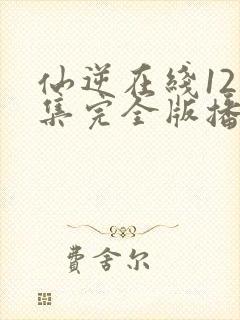 仙逆在线12
集完全版播
费舍尔